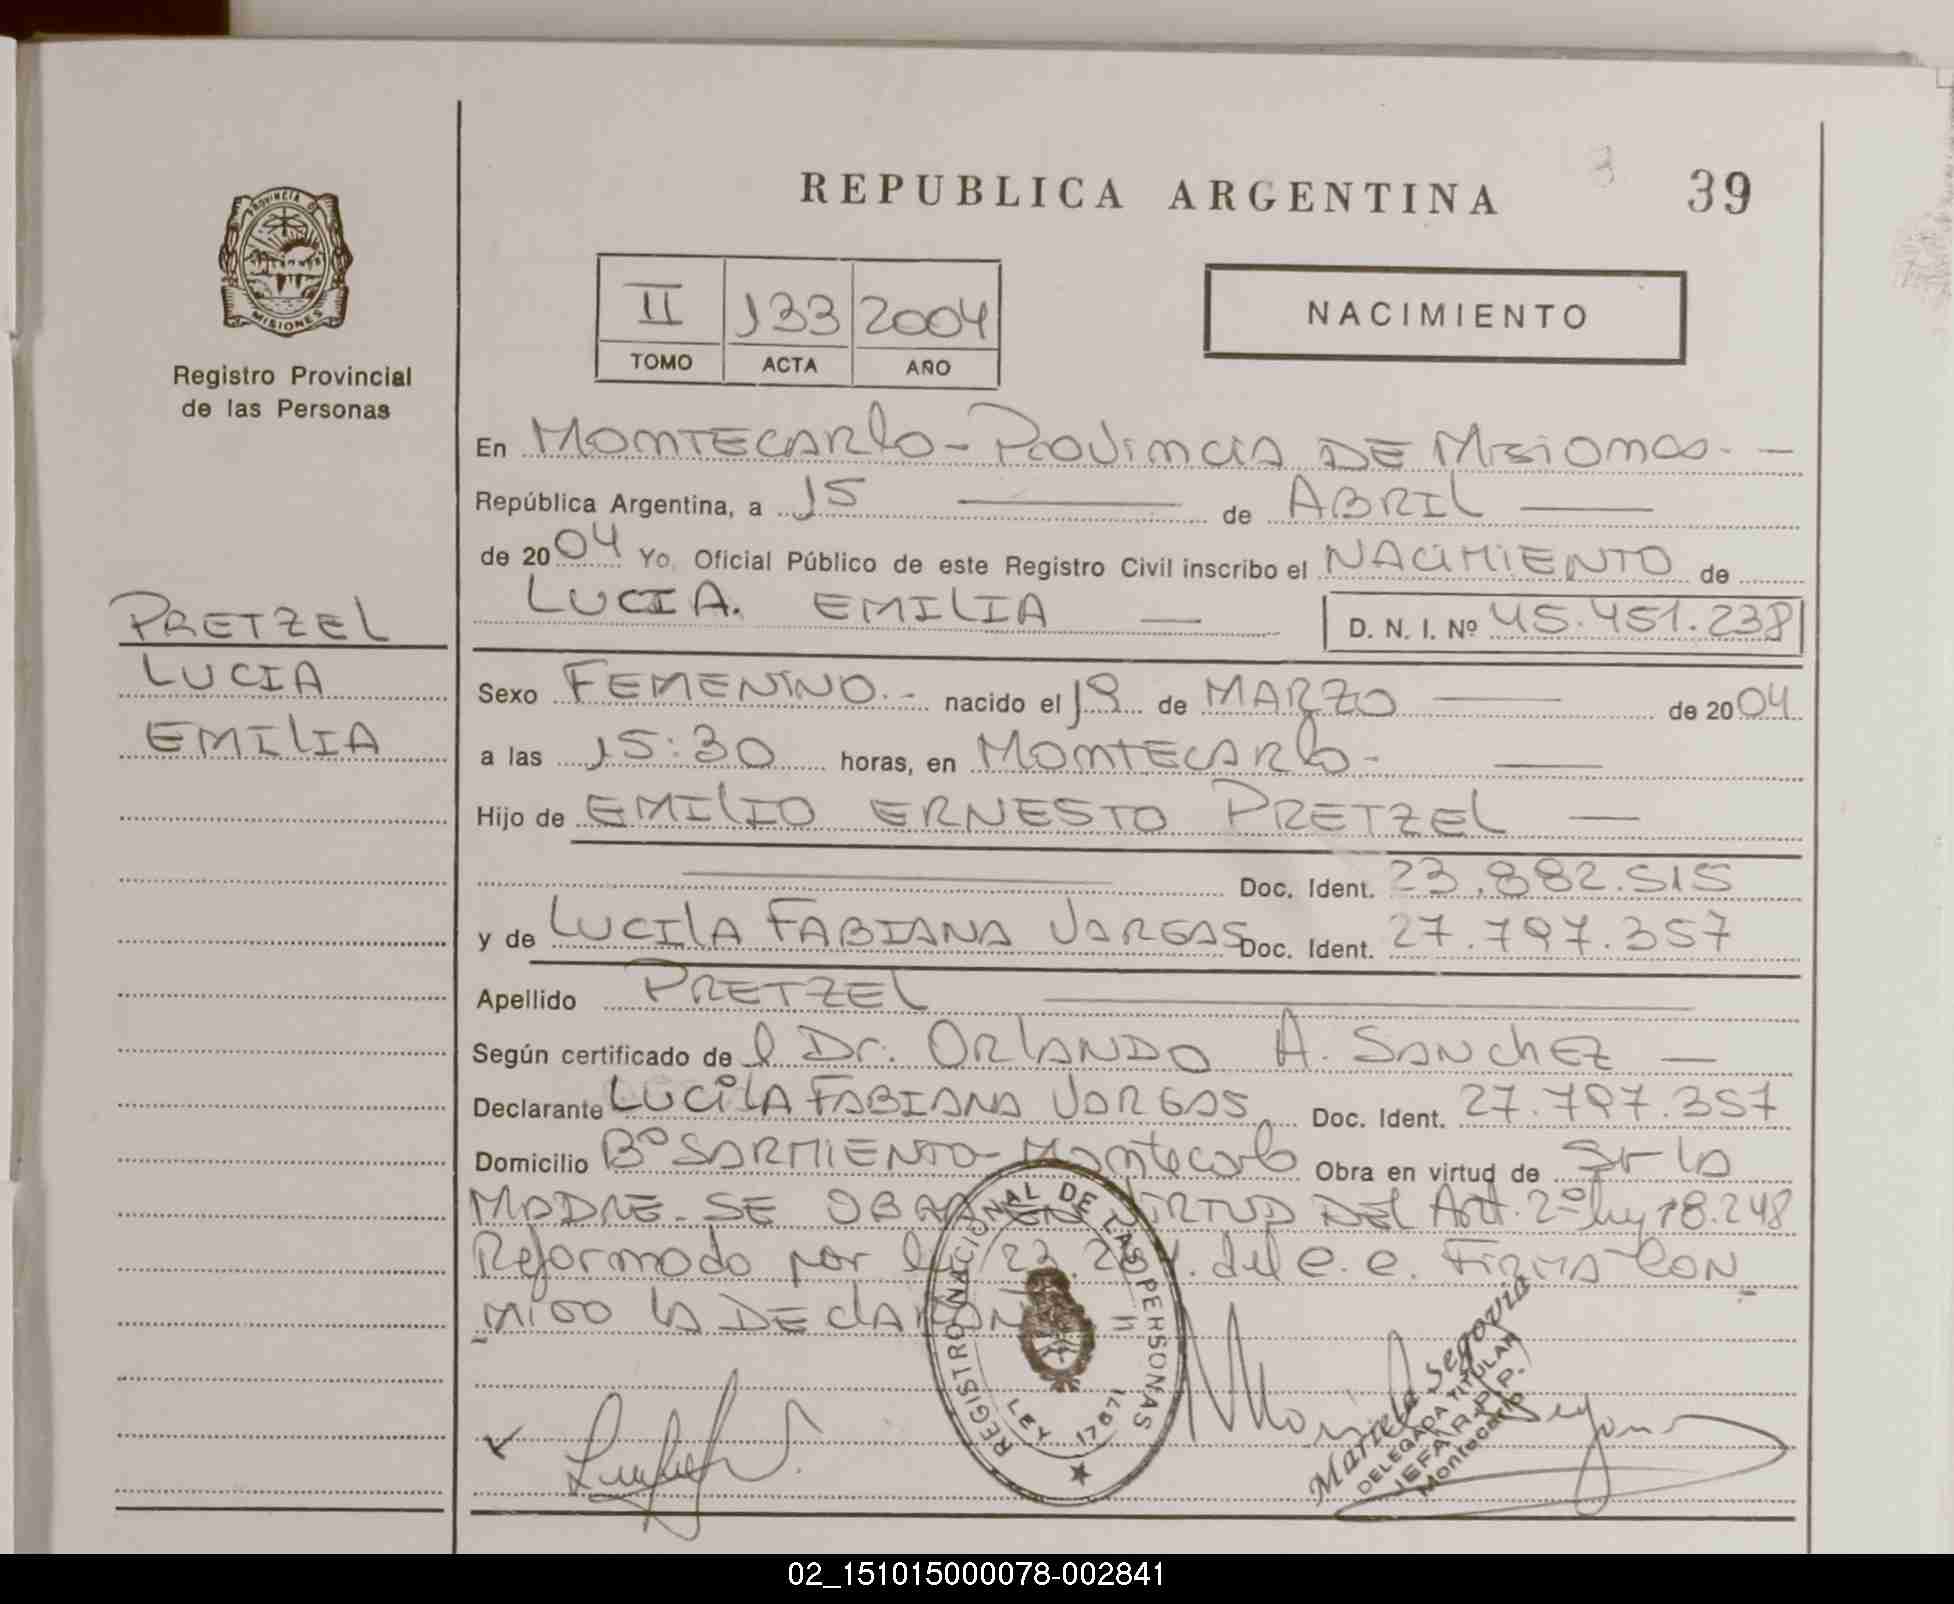 REPUBLICA ARGENTINA
39
PROVINCIA DE
MISIONES
Registro Provincial
de las Personas
II 133 2004
TOMO ACTA AÑO
NACIMIENTO
En MONTECARLO - PROVINCIA DE MISIONES. -
República Argentina, a 15 de ABRIL
de 2004 Yo, Oficial Público de este Registro Civil inscribo el NACIMIENTO de
LUCIA. EMILIA D. N. I. Nº 45.451.238
PRETZEL
LUCIA
EMILIA
Sexo FEMENINO.- nacido el 19 de MARZO de 2004
a las 15:30 horas, en MONTECARLO -
Hijo de EMILIO ERNESTO PRETZEL
Doc. Ident. 23.882.515
y de LUCILA FABIANA VARGAS Doc. Ident. 27.797.357
Apellido PRETZEL
Según certificado de l Dr. ORLANDO A. SANCHEZ
Declarante LUCILA FABIANA VARGAS Doc. Ident. 27.797.357
Domicilio Bº SARMIENTO - Montecarlo Obra en virtud de Ser la
MADRE. SE OBRA EN VIRTUD DEL Art. 2º ley 18.248
Reformado por ley 23. del c. c. FIRMA CON
MIGO LA DECLARANTE
REGISTRO NACIONAL DE LAS PERSONAS
LEY 17671
Mariela Segovia
DELEGADA TITULAR
JEFA R.P.P.
Montecarlo
02_151015000078-002841